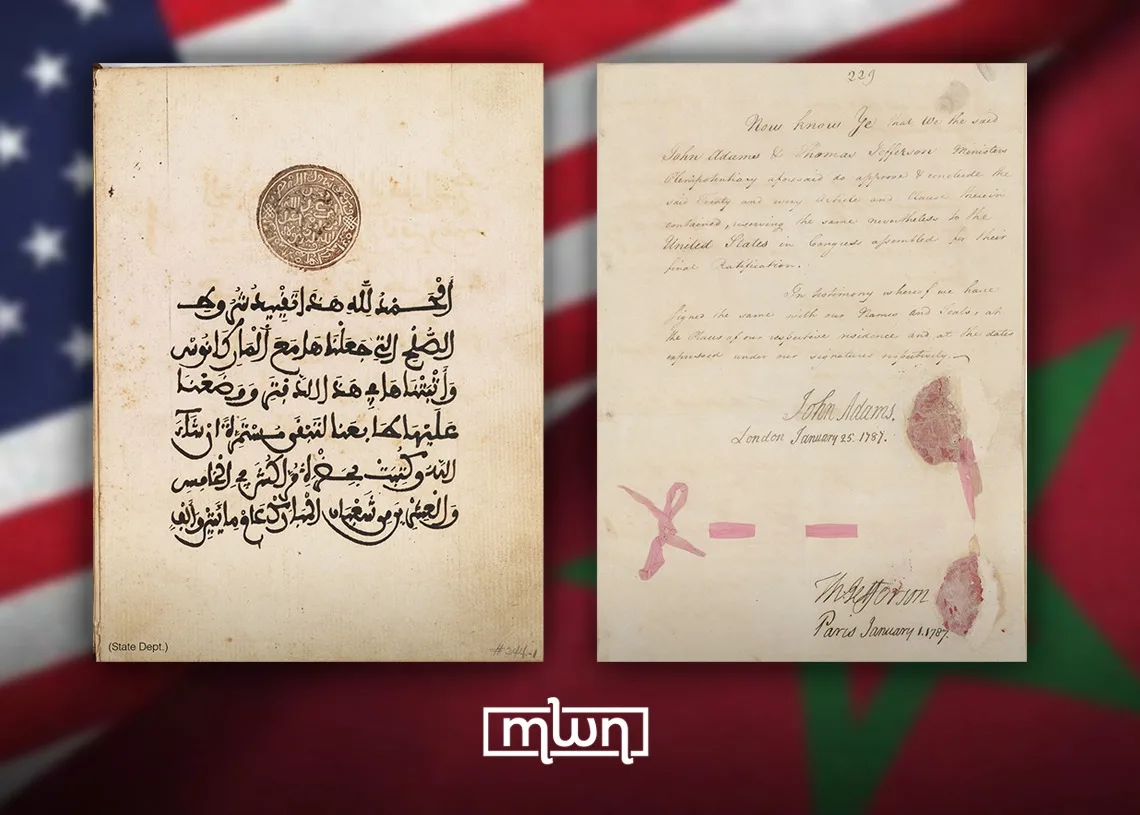 الحمد لله هذا تقييد شروط
الصلح التي جعلناها مع الماركانوس
وأثبتناها في هذا الدفتر ووضعنا
عليها طابعنا لتبقى مستمرة إن شاء
الله وكتبت بحضرة مراكش في الخامس
والعشرين من شعبان المبارك عام مائتين وألف
(State Dept.)
#244-1
229
Now know Ye that We the said
John Adams & Thomas Jefferson Ministers
Plenipotentiary aforesaid do approve & conclude the
said Treaty and every Article and Clause therein
contained, reserving the same nevertheless to the
United States in Congress assembled for their
final Ratification.
In testimony whereof we have
signed the same with our Names and Seals, at
the Places of our respective residence and at the dates
expressed under our signatures respectively.
John Adams.
London January 25. 1787.
Th: Jefferson
Paris January 1. 1787.
mwn